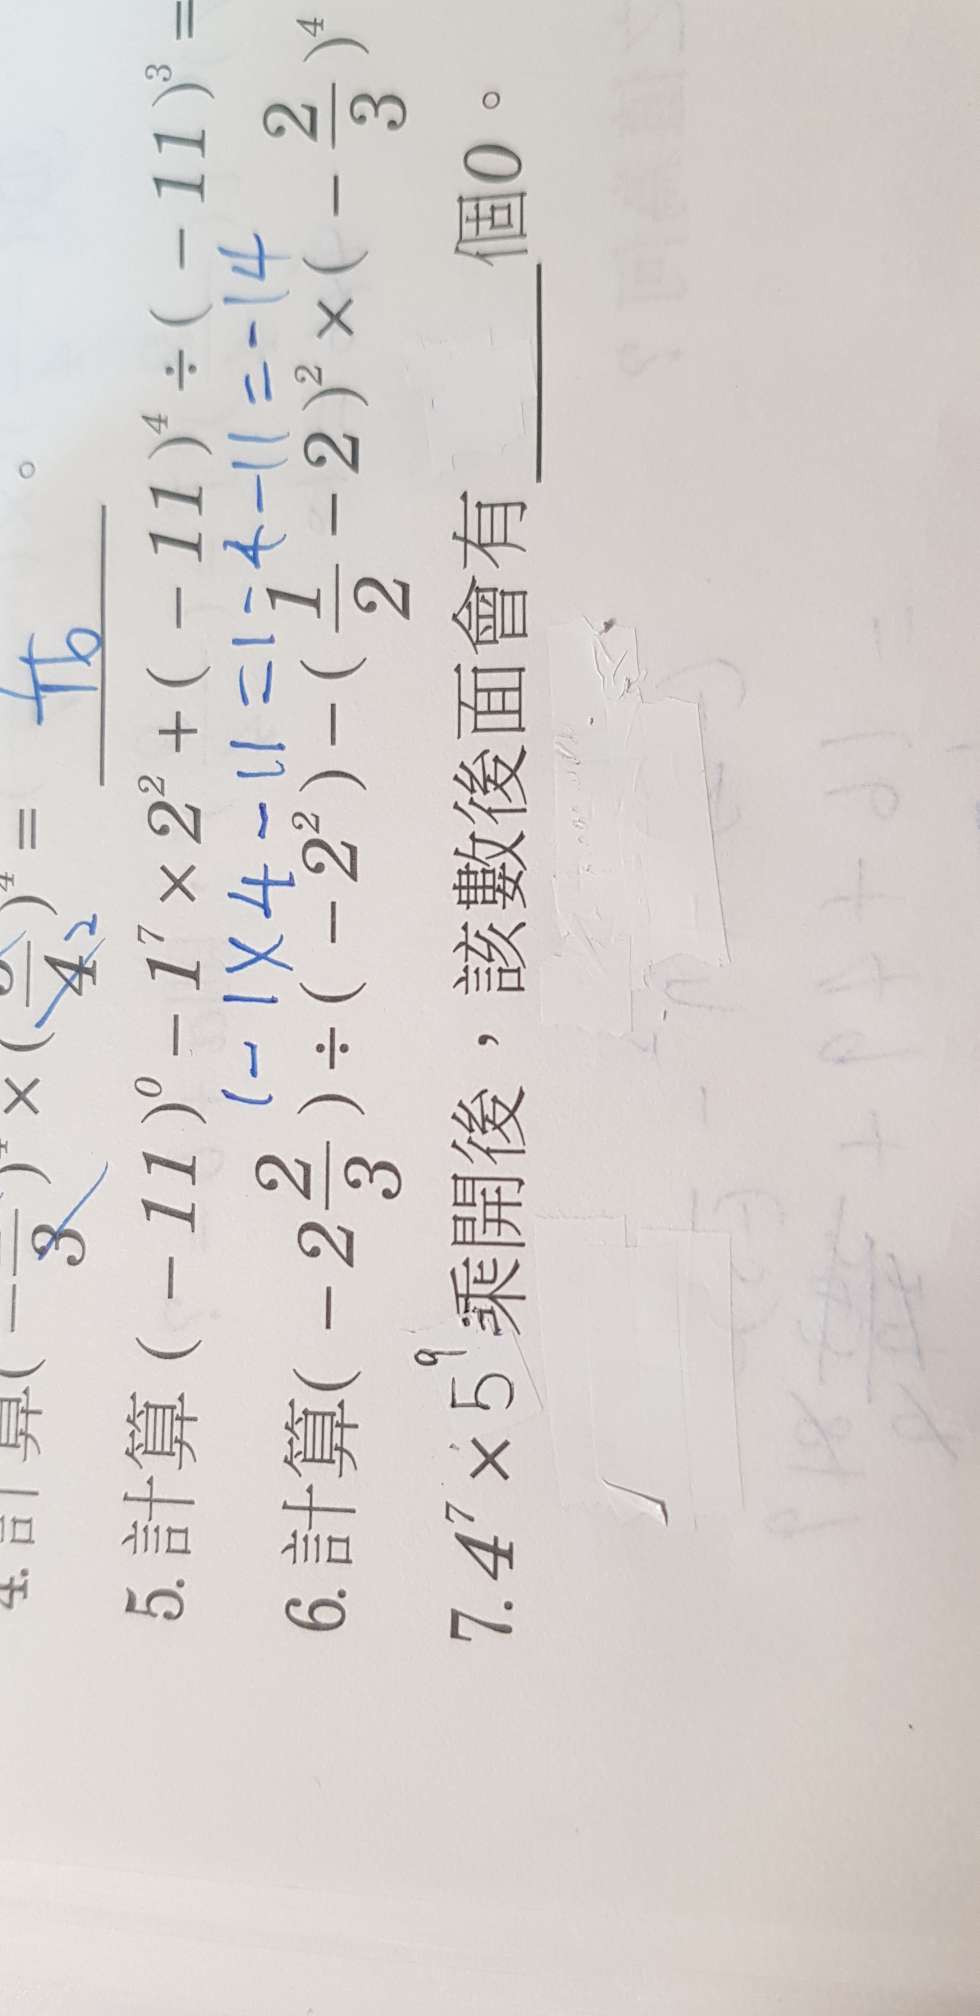 4. 計算(－ 3 )⁴×( 4 2 )⁴＝ 。
5. 計算 (－11)⁰－1⁷×2²＋(－11)⁴÷(－11)³＝
1－1×4－11＝1－4－11＝－14
6. 計算(－2 2/3)÷(－2²)－(1/2－2)²×(－2/3)⁴
7. 4⁷×5⁹乘開後，該數後面會有 個0。